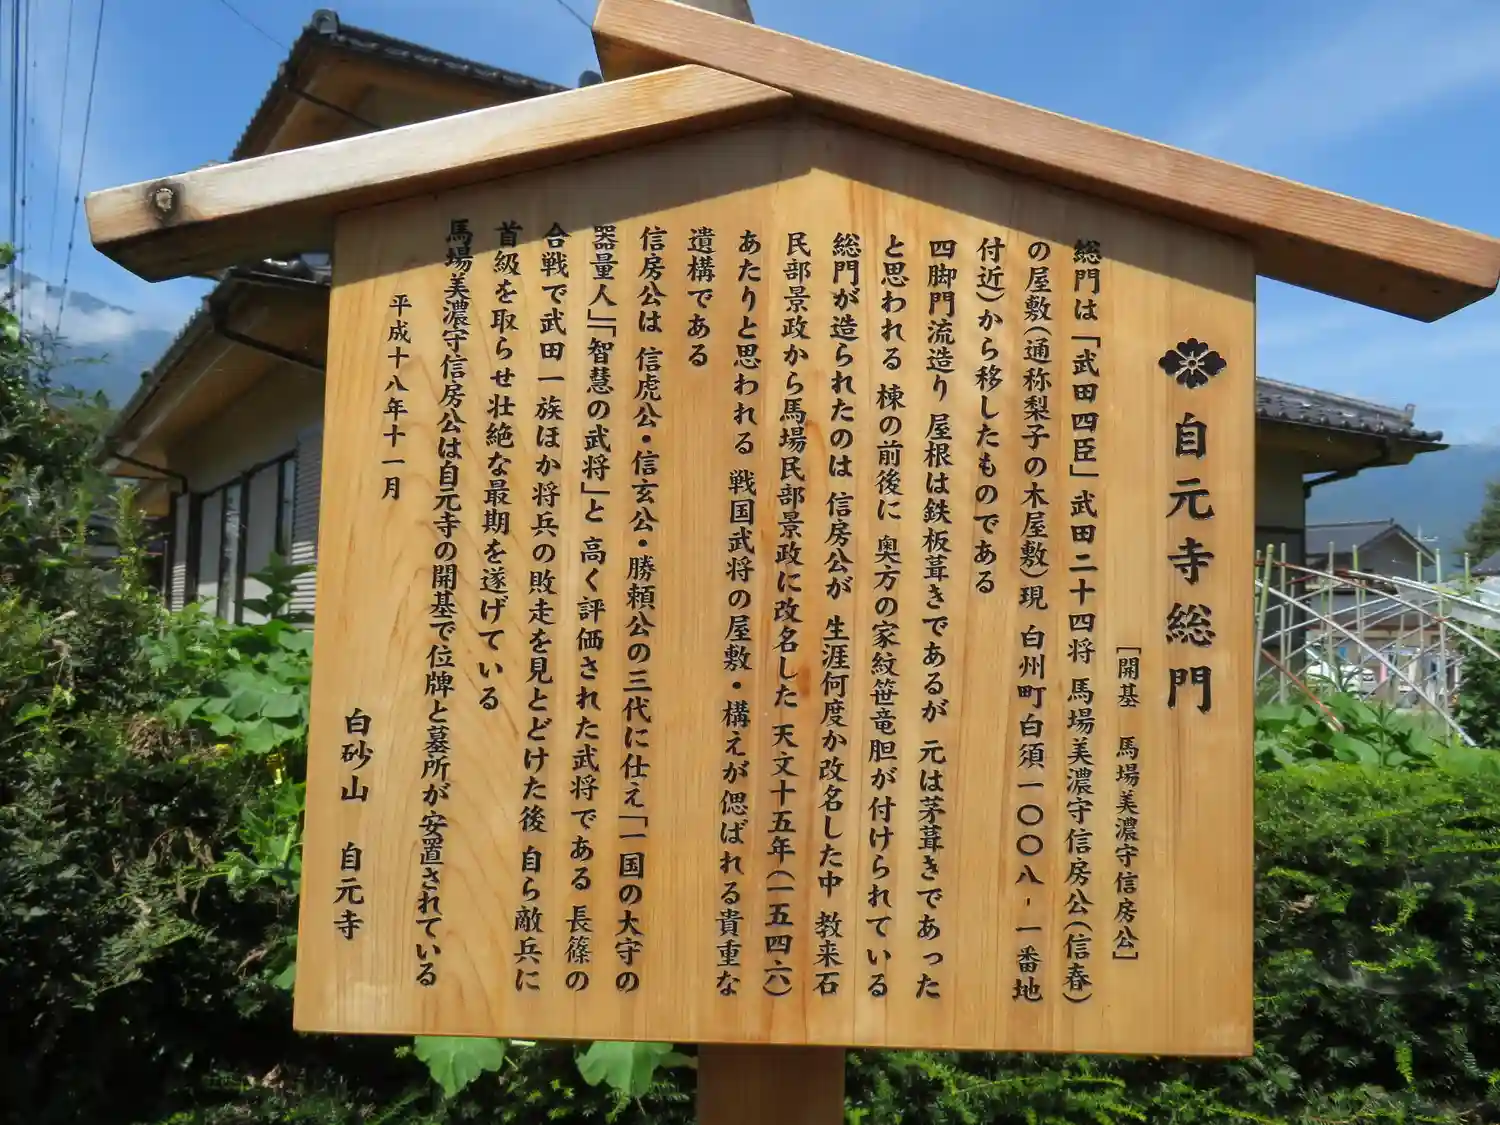 自元寺総門
［開基　馬場美濃守信房公］
総門は「武田四臣」武田二十四将 馬場美濃守信房公（信春）
の屋敷（通称梨子の木屋敷）現 白州町白須一〇〇八‐一番地
付近）から移したものである
四脚門流造り 屋根は鉄板葺きであるが 元は茅葺きであった
と思われる 棟の前後に 奥方の家紋笹竜胆が付けられている
総門が造られたのは 信房公が 生涯何度か改名した中 教来石
民部景政から馬場民部景政に改名した 天文十五年（一五四六）
あたりと思われる 戦国武将の屋敷・構えが偲ばれる貴重な
遺構である
信房公は 信虎公・信玄公・勝頼公の三代に仕え「一国の大守の
器量人」「智慧の武将」と 高く評価された武将である 長篠の
合戦で武田一族ほか将兵の敗走を見とどけた後 自ら敵兵に
首級を取らせ壮絶な最期を遂げている
馬場美濃守信房公は自元寺の開基で位牌と墓所が安置されている
平成十八年十一月
白砂山　自元寺